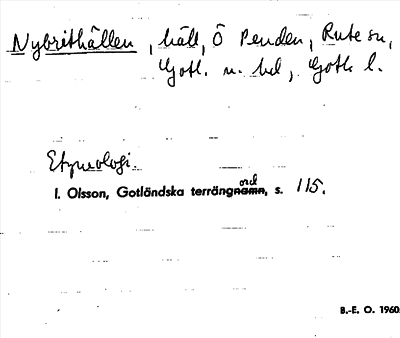 Nybrithällen, häll, Ö Penden, Rute sn,
Gotl. n. hd, Gotl. l.
Etymologi.
I. Olsson, Gotländska terrängnamn, s. 115.
ord
B.-E. O. 1960